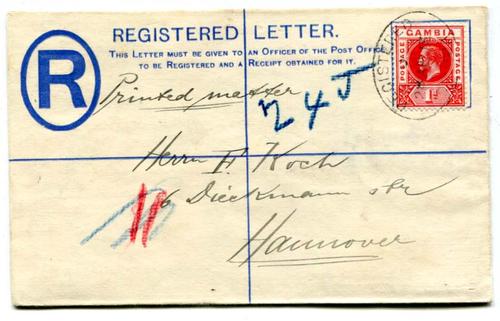 REGISTERED LETTER.
THIS LETTER MUST BE GIVEN TO AN OFFICER OF THE POST OFFICE
TO BE REGISTERED AND A RECEIPT OBTAINED FOR IT.
R
GAMBIA
POSTAGE
POSTAGE
1D
REGISTERED
Printed matter
245
Herrn F. Koch
6 Dieckmann str
Hannover